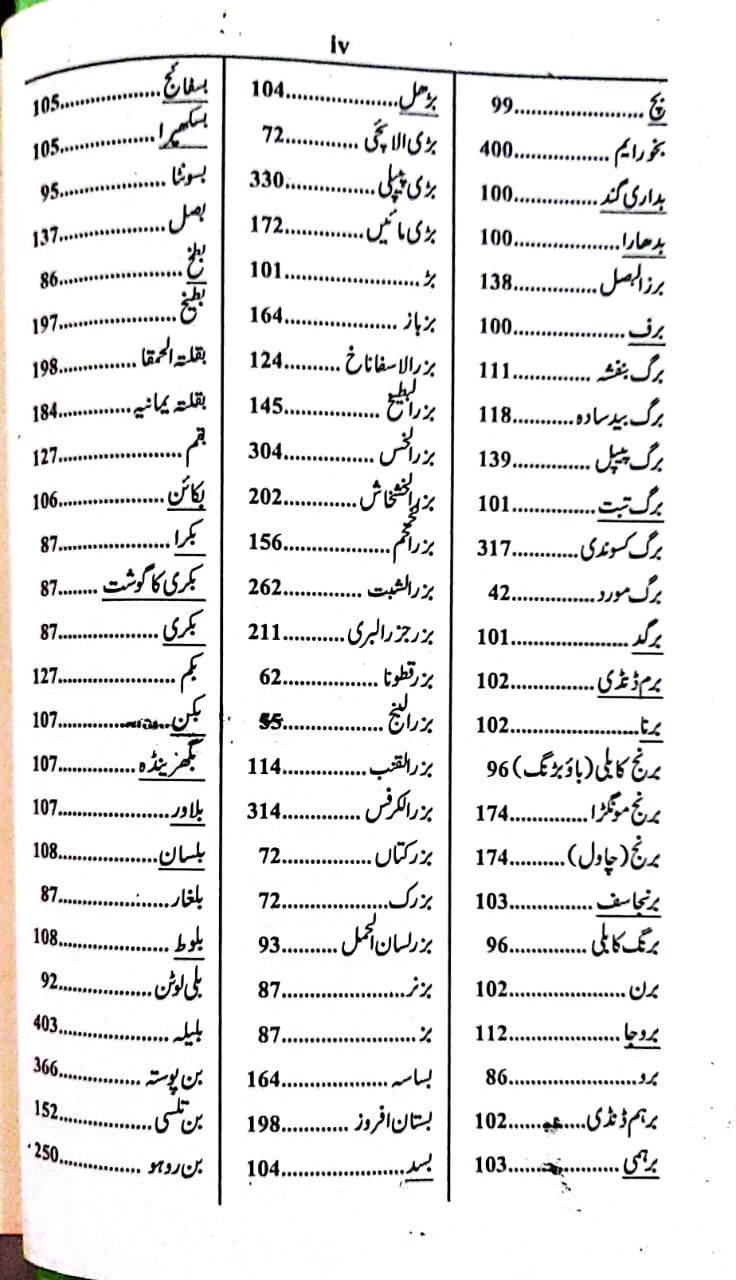 iv
بچ......................99
بخور ایم................400
بداری گند...............100
بدھارا..................100
برز البصل...............138
برف.....................100
برگ بنفشہ...............111
برگ بید سادہ............118
برگ پیپل................139
برگ تبت.................101
برگ کسوندی..............317
برگ مورد................42
برگد....................101
برم ڈنڈی................102
برنا....................102
برنج کابلی (باؤبڑنگ) 96
برنج مونگڑا.............174
برنج (چاول).............174
برنجاسف.................103
برنگ کابلی..............96
برن.....................102
بروجا...................112
برو.....................86
برہم ڈنڈی...............102
برہمی...................103
بڑھل....................104
بڑی الائچی..............72
بڑی پیپلی...............330
بڑی مائیں...............172
بڑ......................101
بزباز...................164
بزر الاسفاناخ...........124
بزر البطیخ..............145
بزر الخس................304
بزر الخشخاش.............202
بزر الخم................156
بزر الشبت...............262
بزر جزر البری...........211
بزر قطونا...............62
بزر البنج...............55
بزر القنب...............114
بزر الکرفس..............314
بزر کتاں................72
بزرک....................72
بزر لسان الحمل..........93
بزنر....................87
بز......................87
بساسہ...................164
بستان افروز.............198
بسد.....................104
بسفائج..................105
بسکھپرا.................105
بسونٹا..................95
بصل.....................137
بطخ.....................86
بطیخ....................197
بقلۃ الحمقا.............198
بقلتہ یمانیہ............184
بقم.....................127
بکائن...................106
بکرا....................87
بکری کا گوشت............87
بکری....................87
بکم.....................127
بکن.....................107
بگھڑینڈہ................107
بلاور...................107
بلسان...................108
بلغار...................87
بلوط....................108
بلی لوٹن................92
بلیلہ...................403
بن پوستہ................366
بن تلسی.................152
بن روہو.................250